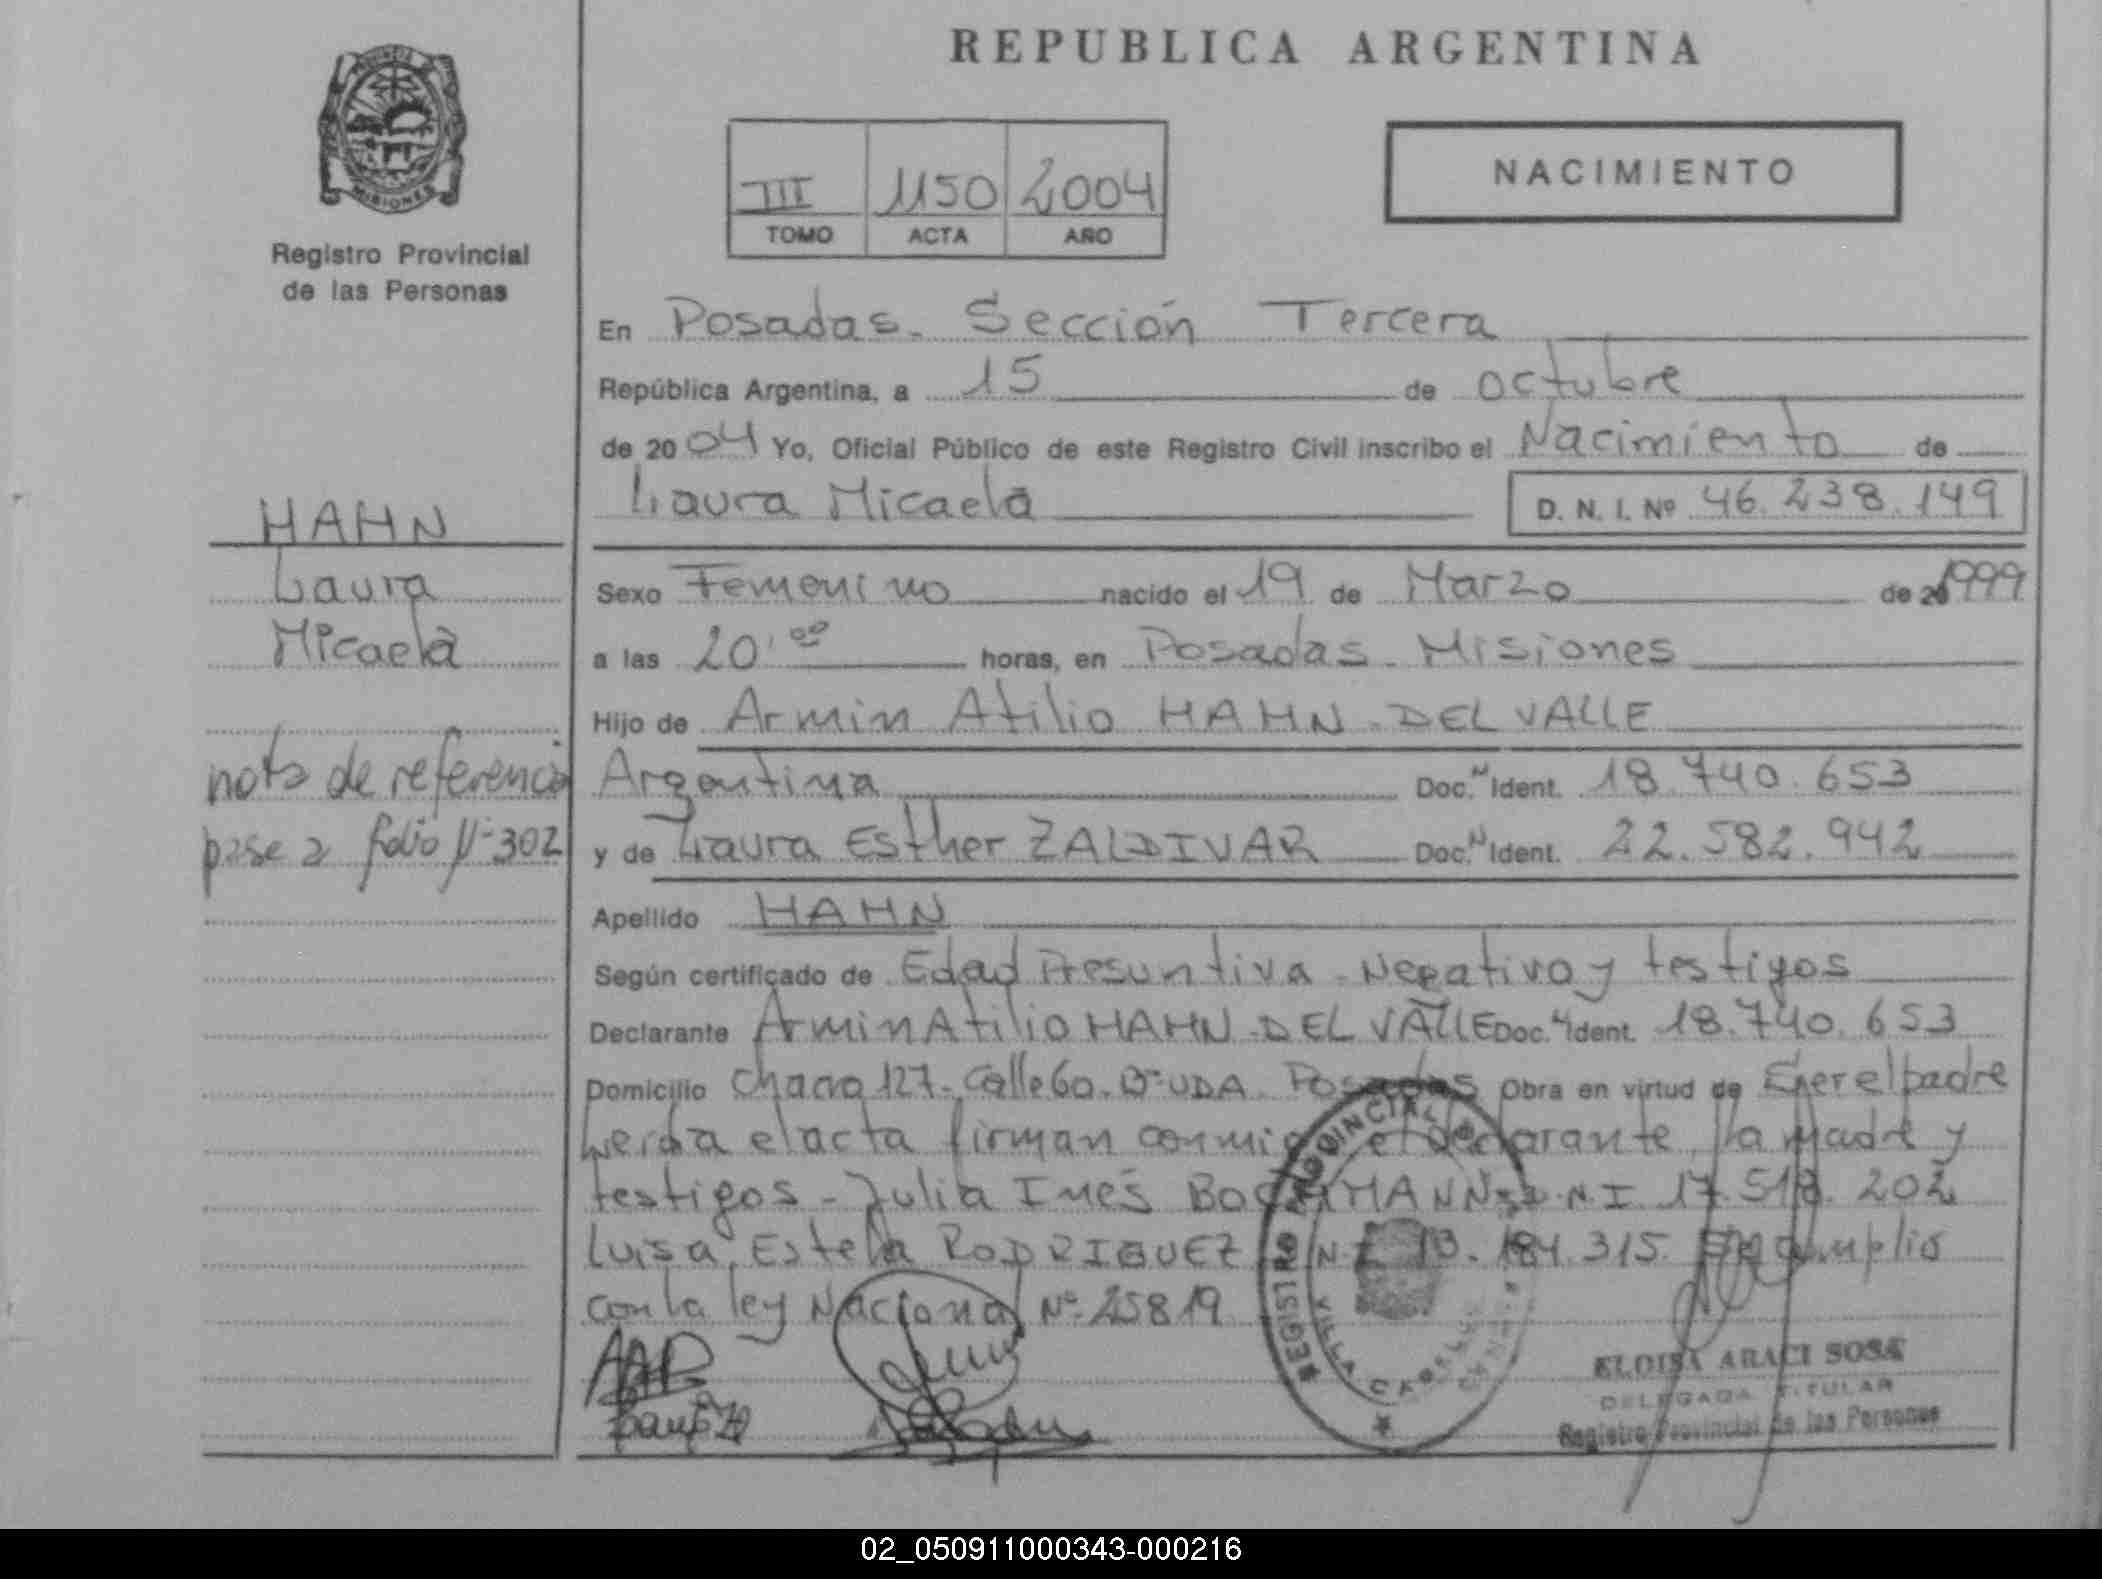 REPUBLICA ARGENTINA
PROVINCIA DE MISIONES
Registro Provincial
de las Personas
III 1150 2004
TOMO ACTA AÑO
NACIMIENTO
En Posadas. Sección Tercera
República Argentina, a 15 de octubre
de 2004 Yo, Oficial Público de este Registro Civil inscribo el Nacimiento de
Laura Micaela
D. N. I. Nº 46.238.149
HAHN
Laura
Micaela
nota de referencia
pase a folio Nº 302
Sexo Femenino nacido el 19 de Marzo de 1999
a las 20'00 horas, en Posadas - Misiones
Hijo de Armin Atilio HAHN - DEL VALLE
Argentina Doc. N Ident. 18.740.653
y de Laura Esther ZALDIVAR Doc. N Ident. 22.582.942
Apellido HAHN
Según certificado de Edad Presuntiva - Negativo y testigos
Declarante Armin Atilio HAHN - DEL VALLE Doc. Ident. 18.740.653
Domicilio Chacra 127 - Calle 60. Bº UDA. Posadas Obra en virtud de Ser el padre
Leída el acta firman conmigo el declarante, la madre y
testigos - Julia Inés D.N.I 17.518.202
Luisa Estela RODRIGUEZ N.I 13.184.315. Se cumplio
con la ley Nacional Nº 25819
REGISTRO PROVINCIAL
VILLA CABELLO
ELOISA ARACI SOSA
DELEGADA TITULAR
Registro Provincial de las Personas
02_050911000343-000216